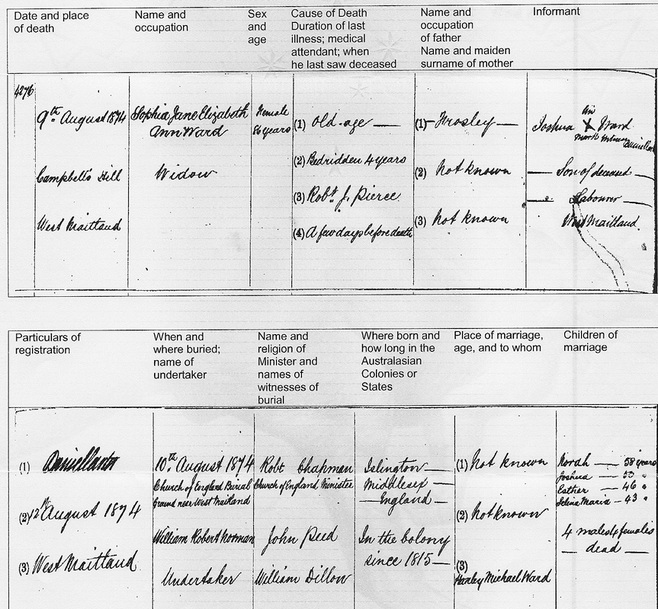 Date and place of death
Name and occupation
Sex and age
Cause of Death Duration of last illness; medical attendant; when he last saw deceased
Name and occupation of father Name and maiden surname of mother
Informant
4276
9th August 1874
Campbells Hill
West Maitland
Sophia Jane Elizabeth
Ann Ward
Widow
Female
86 years
(1) Old age
(2) Bedridden 4 years
(3) Robt J. Pierce
(4) A few days before death
(1)
(2) Not known
(3) Not known
Joshua X Ward
Son of deceased
Labourer
West Maitland
Particulars of registration
When and where buried; name of undertaker
Name and religion of Minister and names of witnesses of burial
Where born and how long in the Australasian Colonies or States
Place of marriage, age, and to whom
Children of marriage
(1)
(2) 12th August 1874
(3) West Maitland
10th August 1874
Church of England Burial
Ground near West Maitland
William Robert Norman
Undertaker
Robt Chapman
Church of England Minister
John Reed
William Dillow
Islington
Middlesex
England
In the colony
since 1815
(1) Not known
(2) Not known
(3)
Michael Ward
Norah 58 years
Joshua "
Esther 46 "
Selina Maria 43 "
4 males 4 females
dead